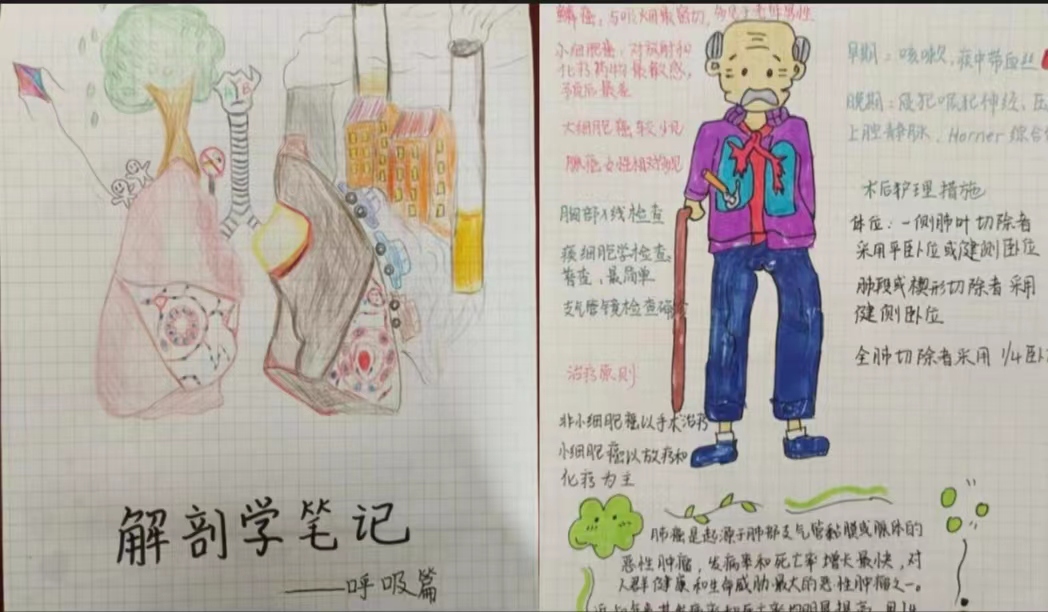 解剖学笔记
——呼吸篇
鳞癌：与吸烟最密切，多见于老年男性
小细胞癌：对放射和
化疗药物最敏感，
预后最差
大细胞癌较少见
腺癌女性相对多见
胸部X线检查
痰细胞学检查：
普查，最简单
支气管镜检查确诊
治疗原则
非小细胞癌以手术治疗
小细胞癌以放疗和
化疗为主
早期：咳嗽，痰中带血丝
晚期：侵犯喉神经，压
上腔静脉，Horner综合
术后护理措施
体位：一侧肺叶切除者
采用平卧位或健侧卧位
肺段或楔形切除者采用
健侧卧位
全肺切除者采用1/4卧
肺癌是起源于肺部支气管黏膜或腺体的
恶性肿瘤，发病率和死亡率增长最快，对
人群健康和生命威胁最大的恶性肿瘤之一。